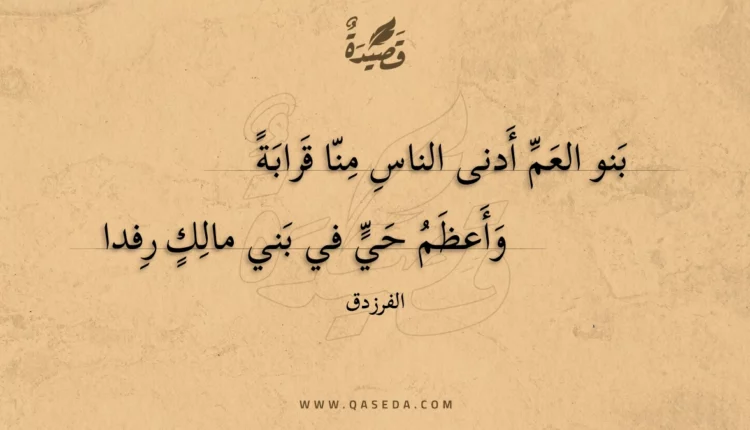 قَصِيدَةٌ
بَنو العَمِّ أَدنى الناسِ مِنّا قَرابَةً
وَأَعظَمُ حَيٍّ في بَني مالِكٍ رِفدا
الفرزدق
WWW.QASEDA.COM